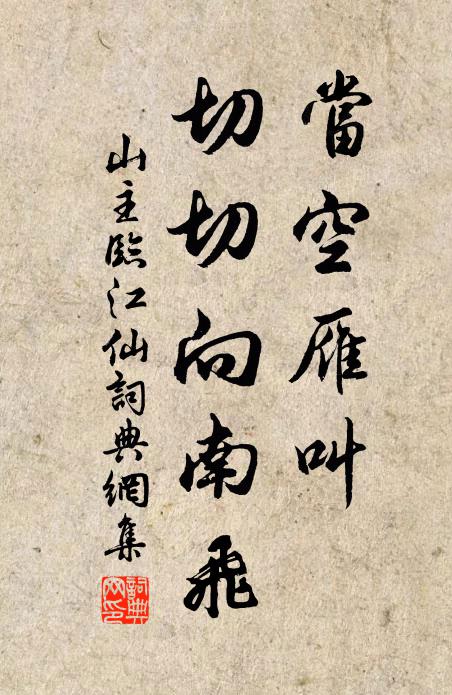 當空雁叫
切切向南飛
山主臨江仙詞典網集
詞典